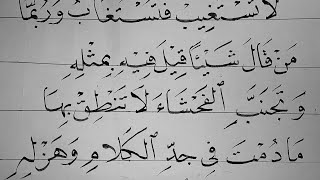 لَا تَسْتَغِيبْ فَتُسْتَغَابُ وَرُبَّمَا
مَنْ قَالَ شَيْئًا قِيلَ فِيهِ بِمِثْلِهِ
وَتَجَنَّبِ الْفَحْشَاءَ لَا تَنْطِقْ بِهَا
مَا دُمْتَ فِي جِدِّ الْكَلَامِ وَهَزْلِهِ